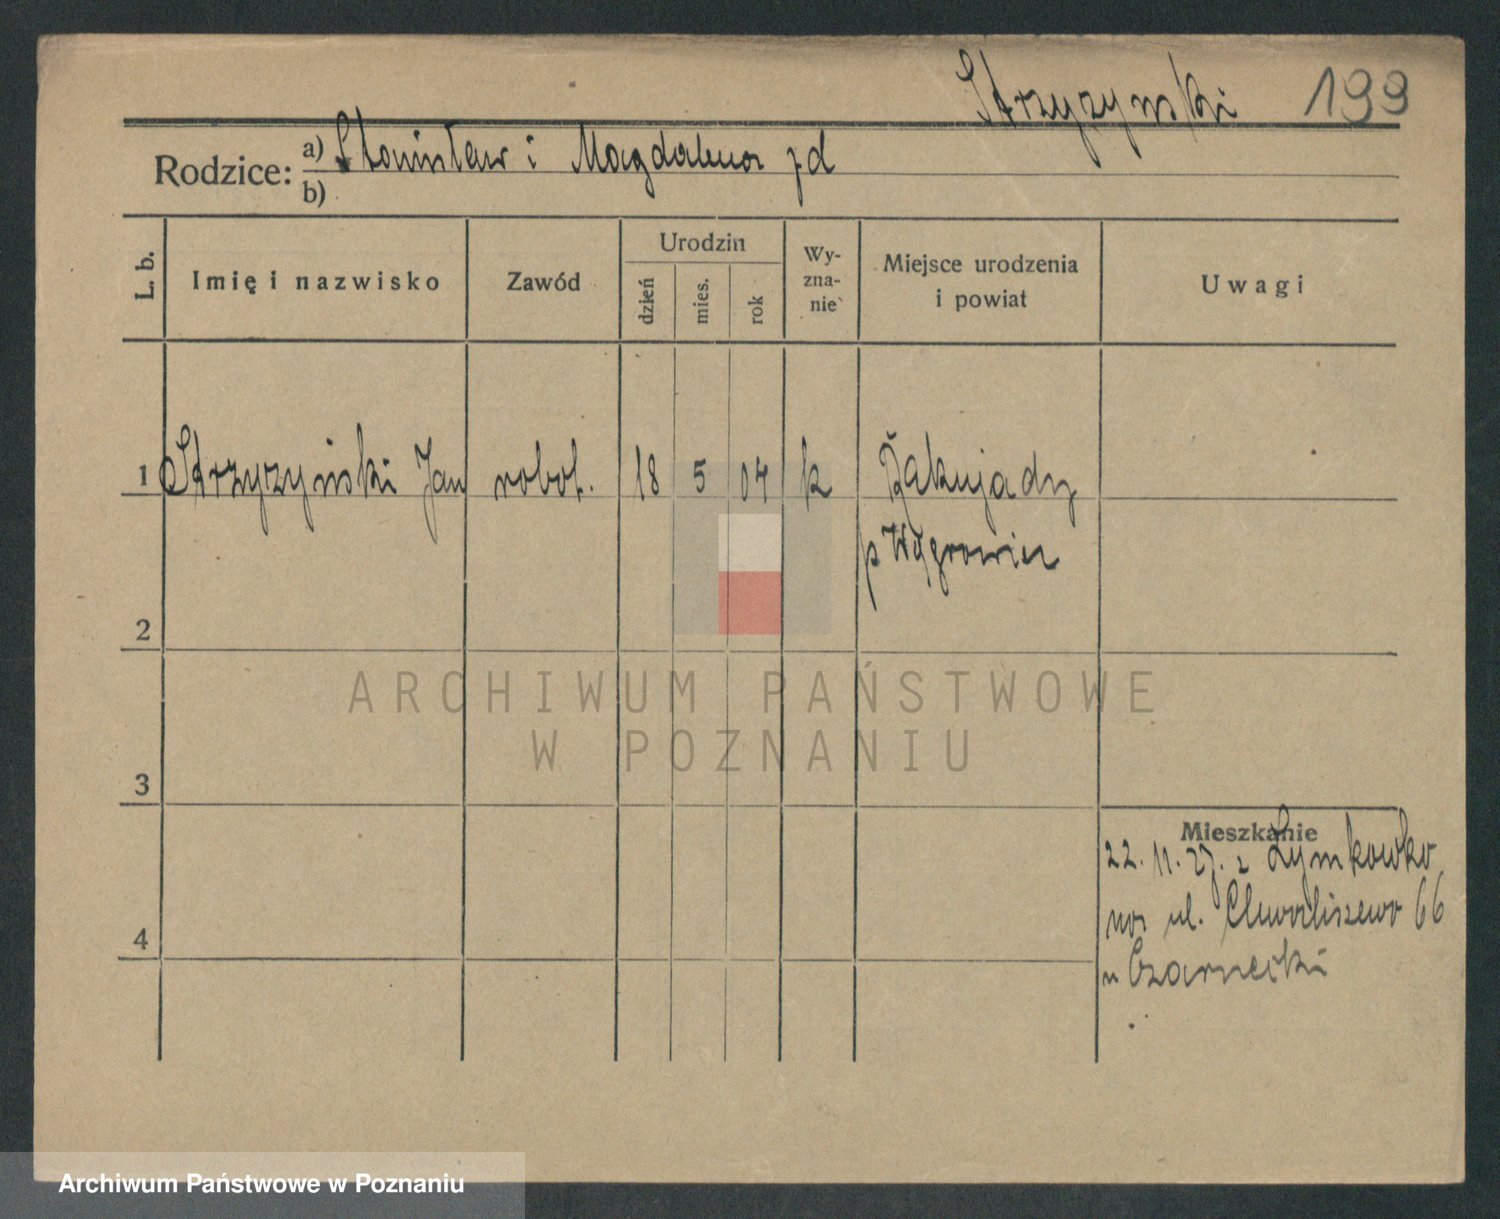 Strzyżyński 199
Rodzice: a) Stanisław i Magdalena jd
b)
L. b. Imię i nazwisko Zawód Urodzin dzień mies. rok Wy-zna-nie Miejsce urodzenia i powiat Uwagi
1 Strzyżyński Jan robot. 18 5 04 k
p Wągrowiec
2
ARCHIWUM PAŃSTWOWE
W POZNANIU
3
Mieszkanie
22. 11. 27. z
na ul. Chwaliszewo 66
4
u Czarnecki
Archiwum Państwowe w Poznaniu